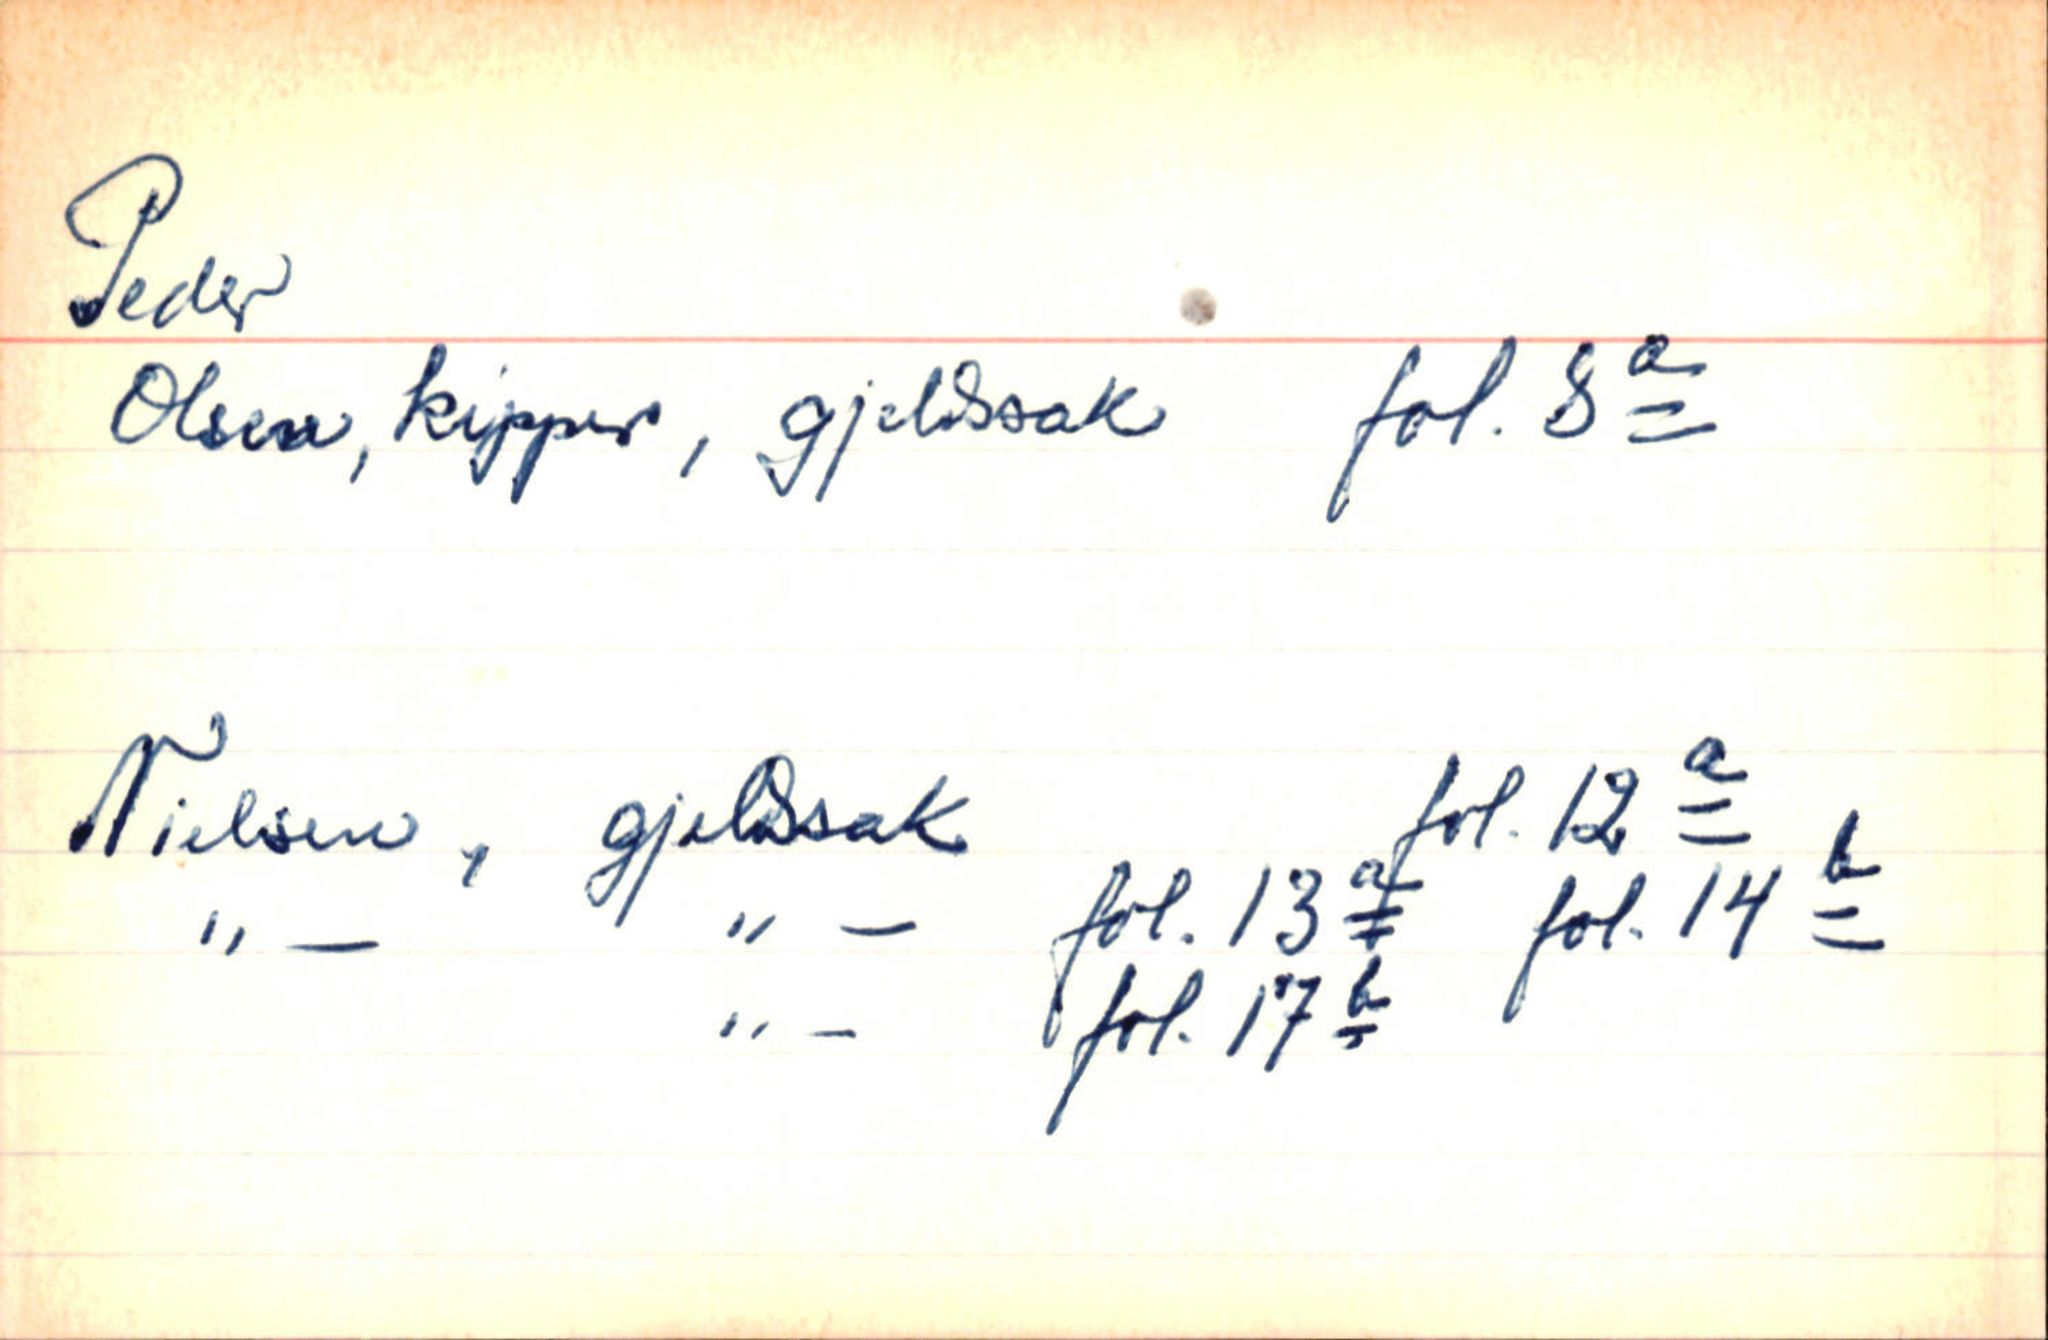 Peder
Olsen, kipper, gjeldssak fol. 8 a
Nielsen, gjeldssak fol. 12 a
" — " — fol. 13 a fol. 14 b
" — fol. 17 b